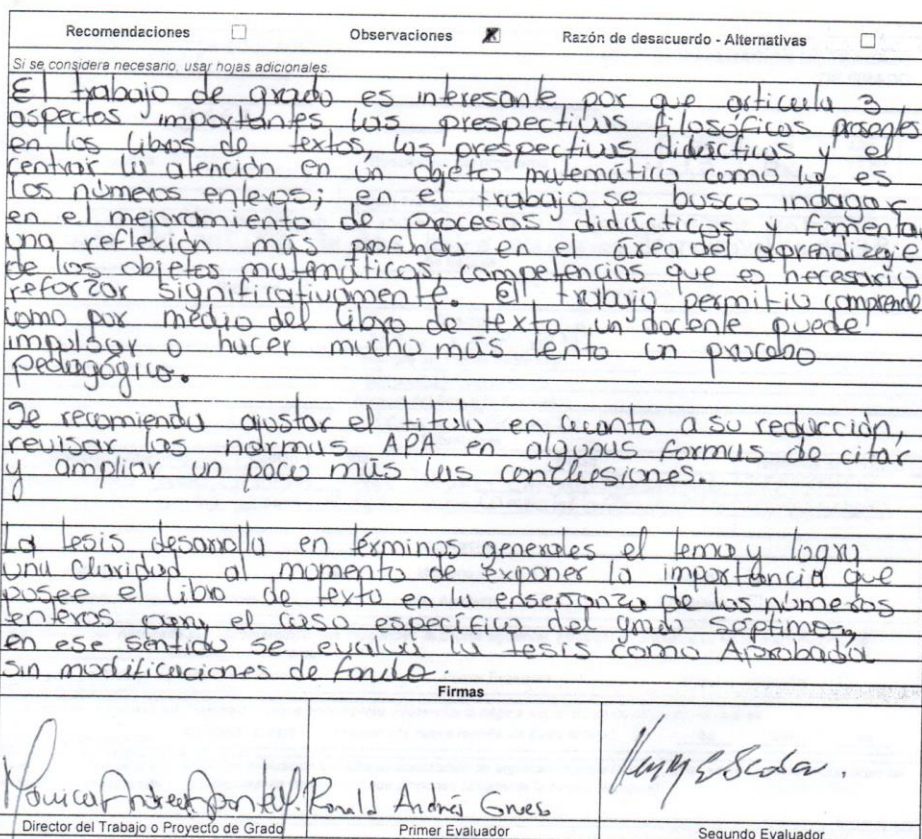 Recomendaciones Observaciones X Razón de desacuerdo - Alternativas
Si se considera necesario, usar hojas adicionales.
El trabajo de grado es interesante por que articula 3
aspectos importantes las prespectivas filosóficas presentes
en los libros de textos, las prespectivas didácticas y el
centrar la atención en un objeto matemático como lo es
los números enteros; en el trabajo se busco indagar
en el mejoramiento de procesos didácticos y fomentar
una reflexión más profunda en el área del aprendizaje
de los objetos matemáticos, competencias que es necesario
reforzar significativamente. El trabajo permitio comprender
como por medio del libro de texto un docente puede
impulsar o hacer mucho más lento un proceso
pedagógico.
Se recomienda ajustar el titulo en cuanto a su redacción,
revisar las normas APA en algunas formas de citar
y ampliar un poco más las conclusiones.
La tesis desarrolla en términos generales el tema y logra
una claridad al momento de exponer la importancia que
posee el libro de texto en la enseñanza de los números
enteros para el caso específico del grado séptimo,
en ese sentido se evalua la tesis como Aprobada
sin modificaciones de fondo.
Firmas
Monica Andrea
Ronald Andrés
Director del Trabajo o Proyecto de Grado Primer Evaluador Segundo Evaluador